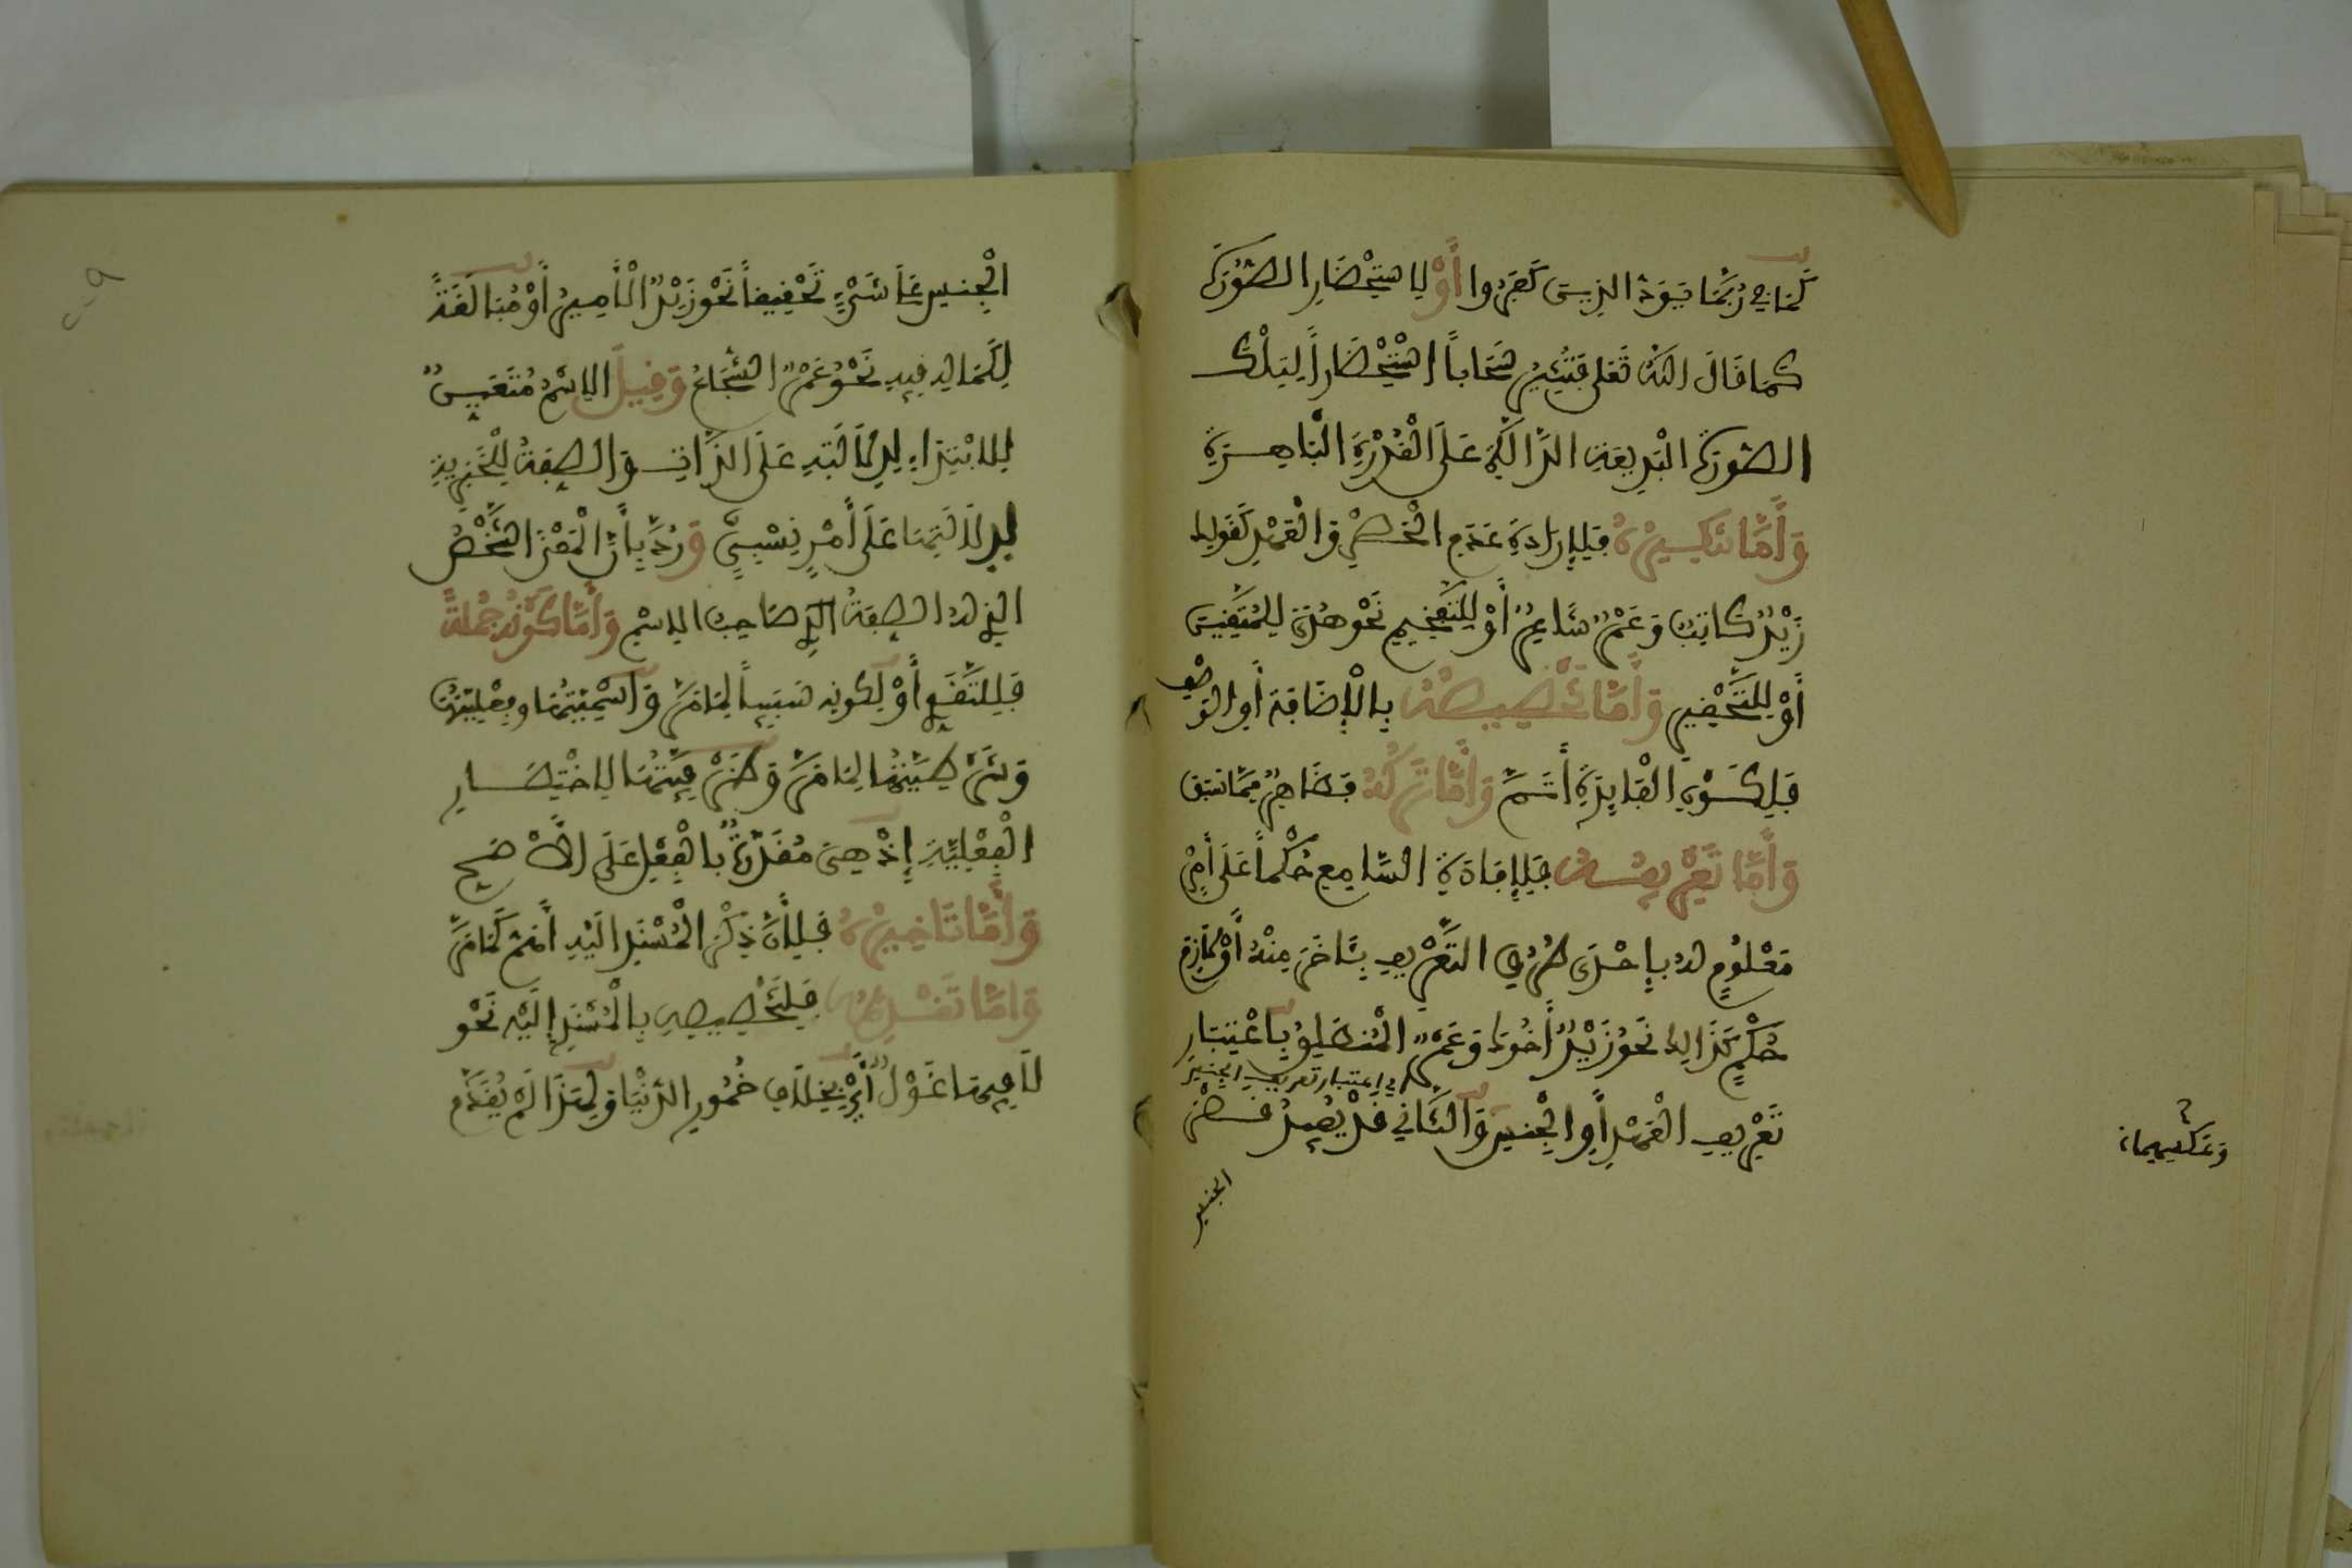 كَمَا في رُبَمَا يَوَدُّ الذِينَ كَفَرُوا أَوْ لِاسْتِحْضَارِ الصُّورَةِ
كَمَا قَالَ اللهُ تَعَلَى فَتُثِيرُ سَحَاباً اسْتِحْضَاراً لِتِلْكَ
الصُّورَةِ الْبَدِيعَةِ الدَّالَّةِ عَلَى الْقُدْرَةِ الْبَاهِرَةِ
وَأَمَّا تَنْكِيرُهُ فَلِإِرَادَةِ عَدَمِ الْحَصْرِ وَالْعَهْدِ كَقَوْلِكَ
زَيْدٌ كَاتِبٌ وَعَمْرٌو شَاعِرٌ أَوْ لِلتَّفْخِيمِ نَحْوُ هُدًى لِلْمُتَّقِينَ
أَوْ لِلتَّحْقِيرِ وَأَمَّا تَخْصِيصُهُ بِالْإِضَافَةِ أَوِ الوَصْفِ
فَلِكَوْنِ الْفَائِدَةِ أَتَمَّ وَأَمَّا تَرْكُهُ فَظَاهِرٌ مِمَّا سَبَقَ
وَأَمَّا تَعْرِيفُهُ فَلِإِفَادَةِ السَّامِعِ حُكْماً عَلَى أَمْرٍ
مَعْلُومٍ لَهُ بِإِحْدَى طُرُقِ التَّعْرِيفِ بِئَاخَرَ مِثْلِهِ أَوْ لَازِمَ
حُكْمٍ كَذَالِكَ نَحْوُ زَيْدٌ أَخُوكَ وَعَمْرٌو الْمُنْطَلِقُ بِاعْتِبَارِ
اي اعتبار تعريف الجنس
تَعْرِيفِ الْعَهْدِ أَوِ الْجِنْسِ وَالثَّانِي قَدْ يُفِيدُ قَصْرَ
وعكسهما
الجنس
الْجِنْسِ عَلَى شَيْءٍ تَحْقِيقاً نَحْوُ زَيْدٌ الْأَمِيرُ أَوْ مُبَالَغَةً
لِكَمَالِهِ فِيهِ نَحْوُ عَمْرٌو الشُّجَاعُ وَقِيلَ الِاسْمُ مُتَعَيِّنٌ
لِلابْتِدَاءِ لِدِلَالَتِهِ عَلَى الذَّاتِ وَالصِّفَةُ لِلْخَبَرِيَّةِ
لِدِلَالَتِهَا عَلَى أَمْرٍ نِسْبِيٍّ وَرُدَّ بِأَنَّ الْمَعْنَى الشَّخْصُ
الذِي لَهُ الصِّفَةُ صَاحِبُ الِاسْمِ وَأَمَّا كَوْنُهُ جُمْلَةً
فَلِلتَّقَوِّي أَوْ لِكَوْنِهِ سَبَبِيّاً لِمَا مَرَّ وَاسْمِيَّتُهَا وَفِعْلِيَّتُهَا
وَشَرْطِيَّتُهَا لِمَا مَرَّ وَظَرْفِيَّتُهَا لِاخْتِصَارِ
الْفِعْلِيَّةِ إِذْ هِيَ مُقَدَّرَةٌ بِالْفِعْلِ عَلَى الْأَصَحِّ
وَأَمَّا تَاخِيرُهُ فَلِأَنَّ ذِكْرَ الْمُسْنَدِ إِلَيْهِ أَهَمُّ كَمَا مَرَّ
وَأَمَّا تَقْدِيمُهُ فَلِتَخْصِيصِهِ بِالْمُسْنَدِ إِلَيْهِ نَحْوُ
لَا فِيهَا غَوْلٌ أَيْ بِخِلَافِ خُمُورِ الدُّنْيَا وَلِهَذَا لَمْ يُقَدَّمِ